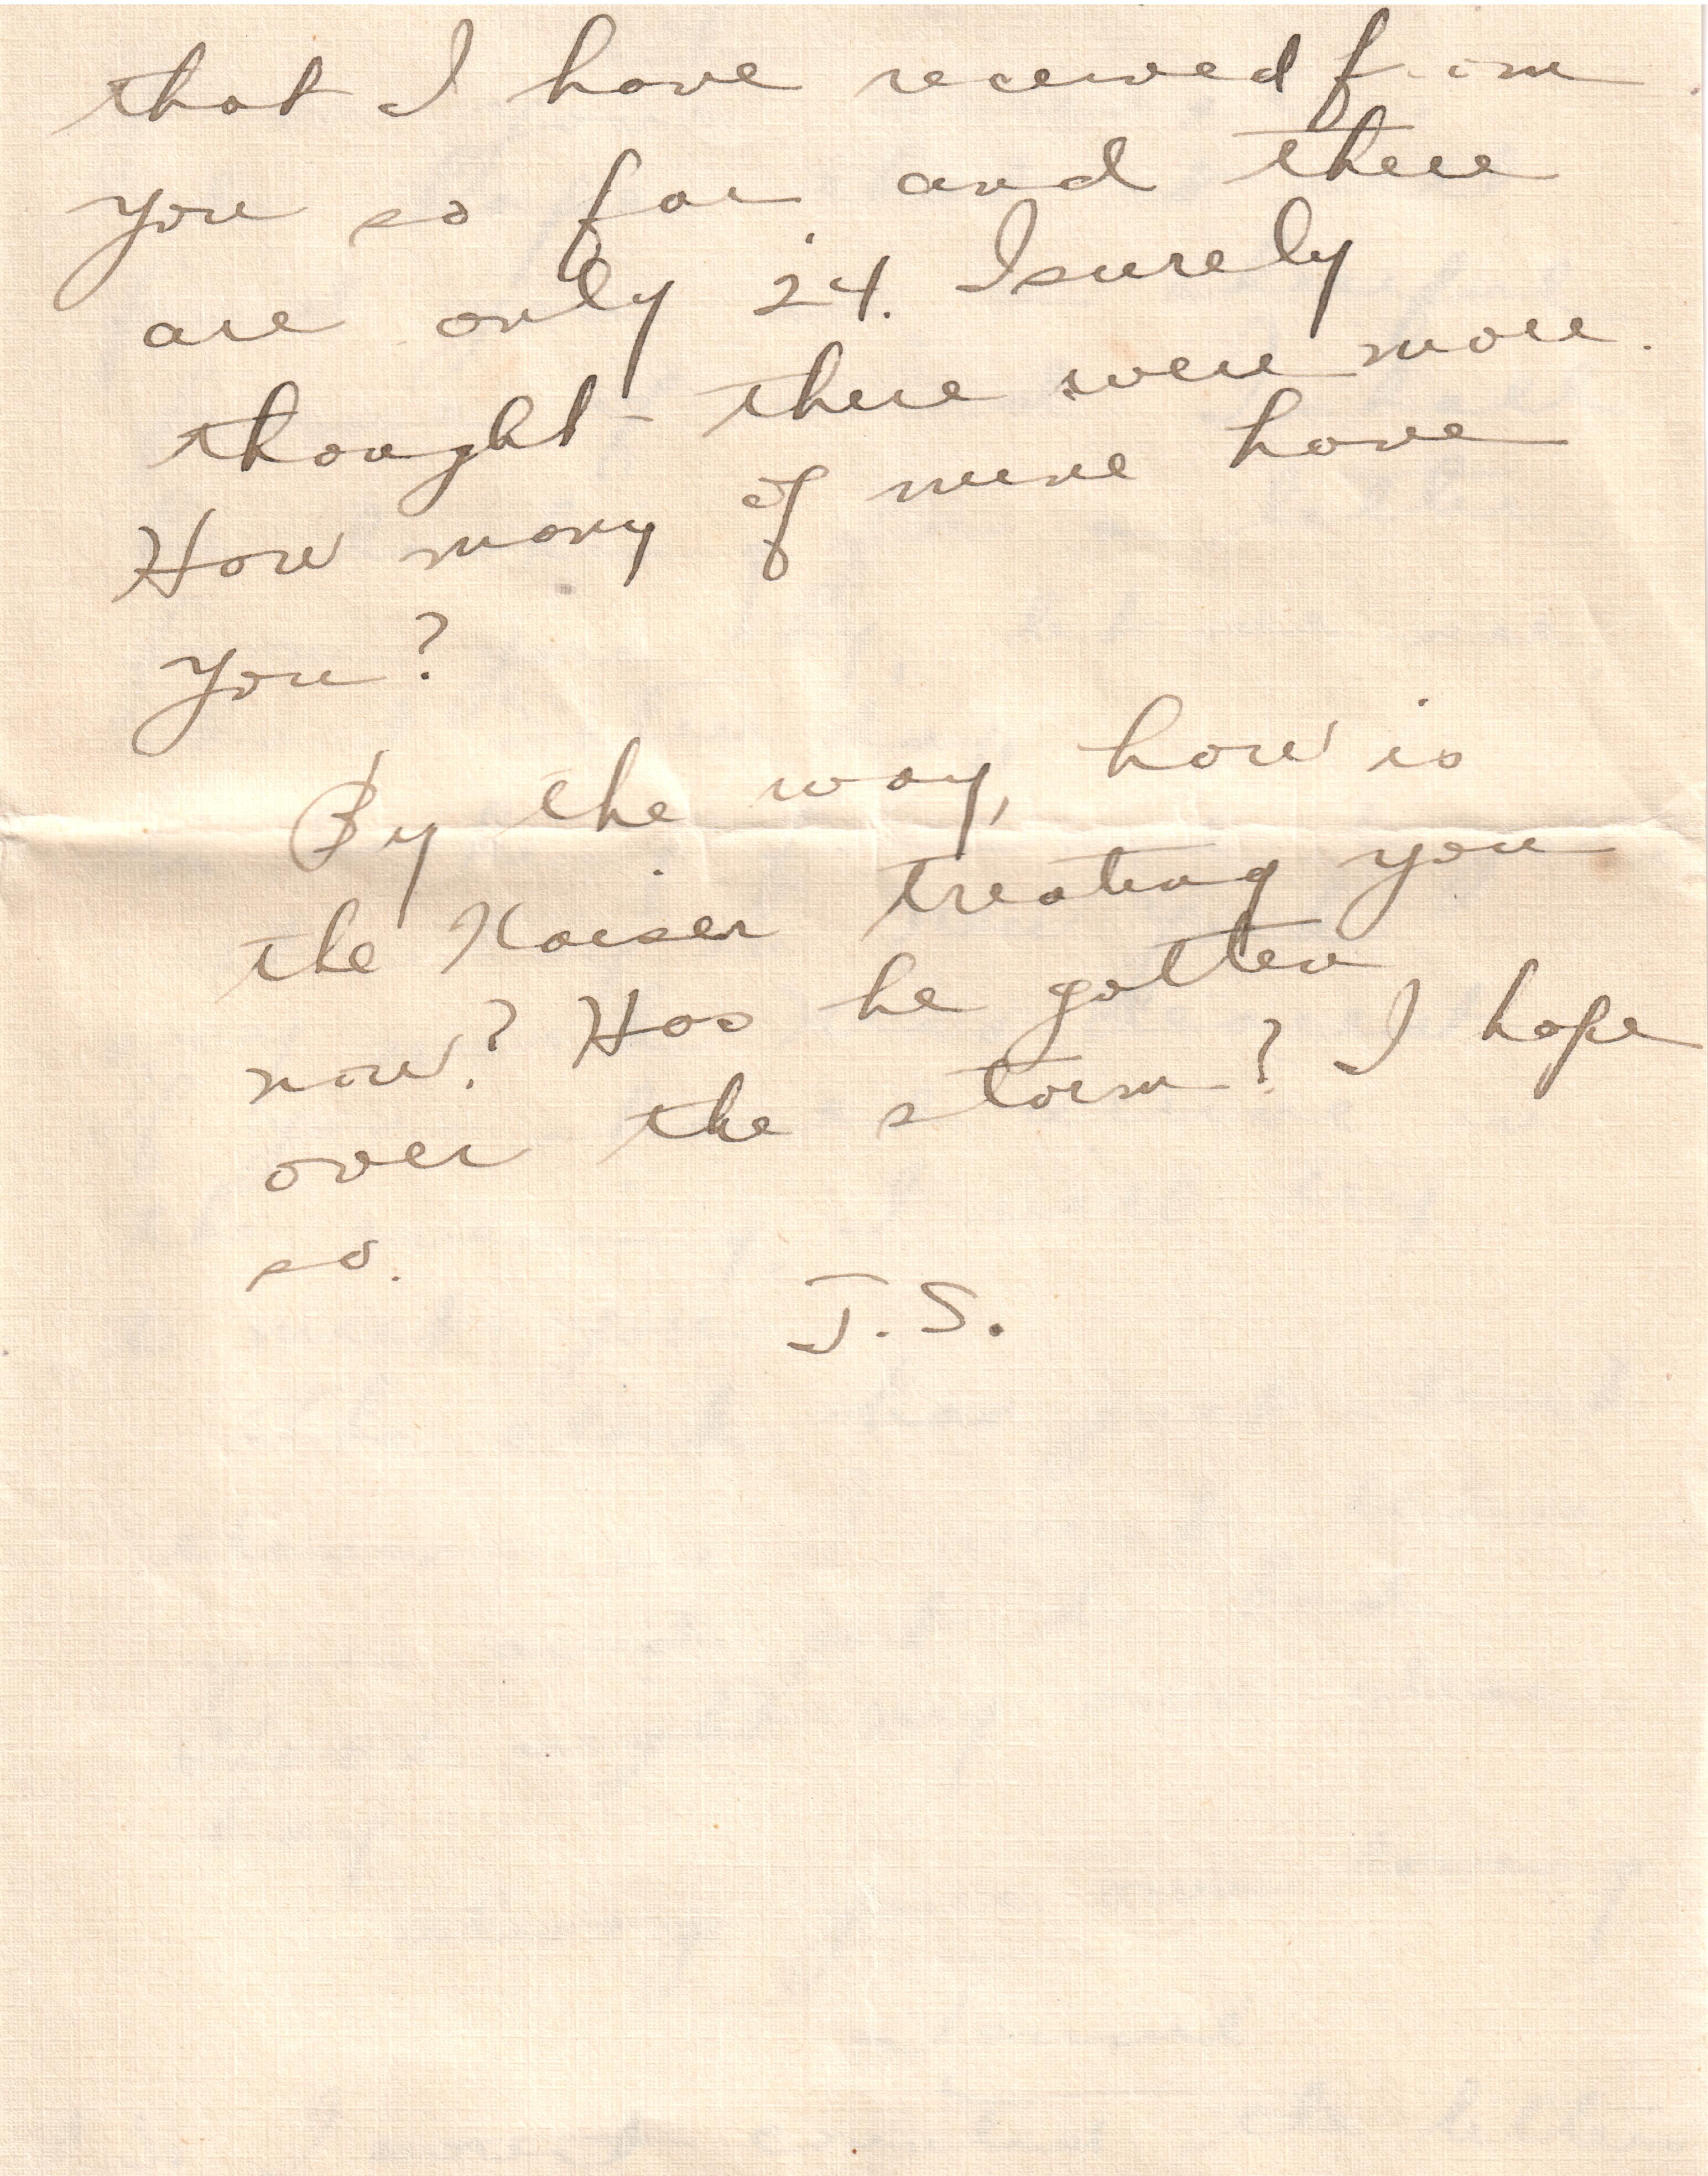 that I have received from
you so far and there
are only 24. I surely
thought there were more.
How many of mine have
you?
By the way, how is
the Kaiser treating you
now? Has he gotten
over the storm? I hope
so.
J.S.